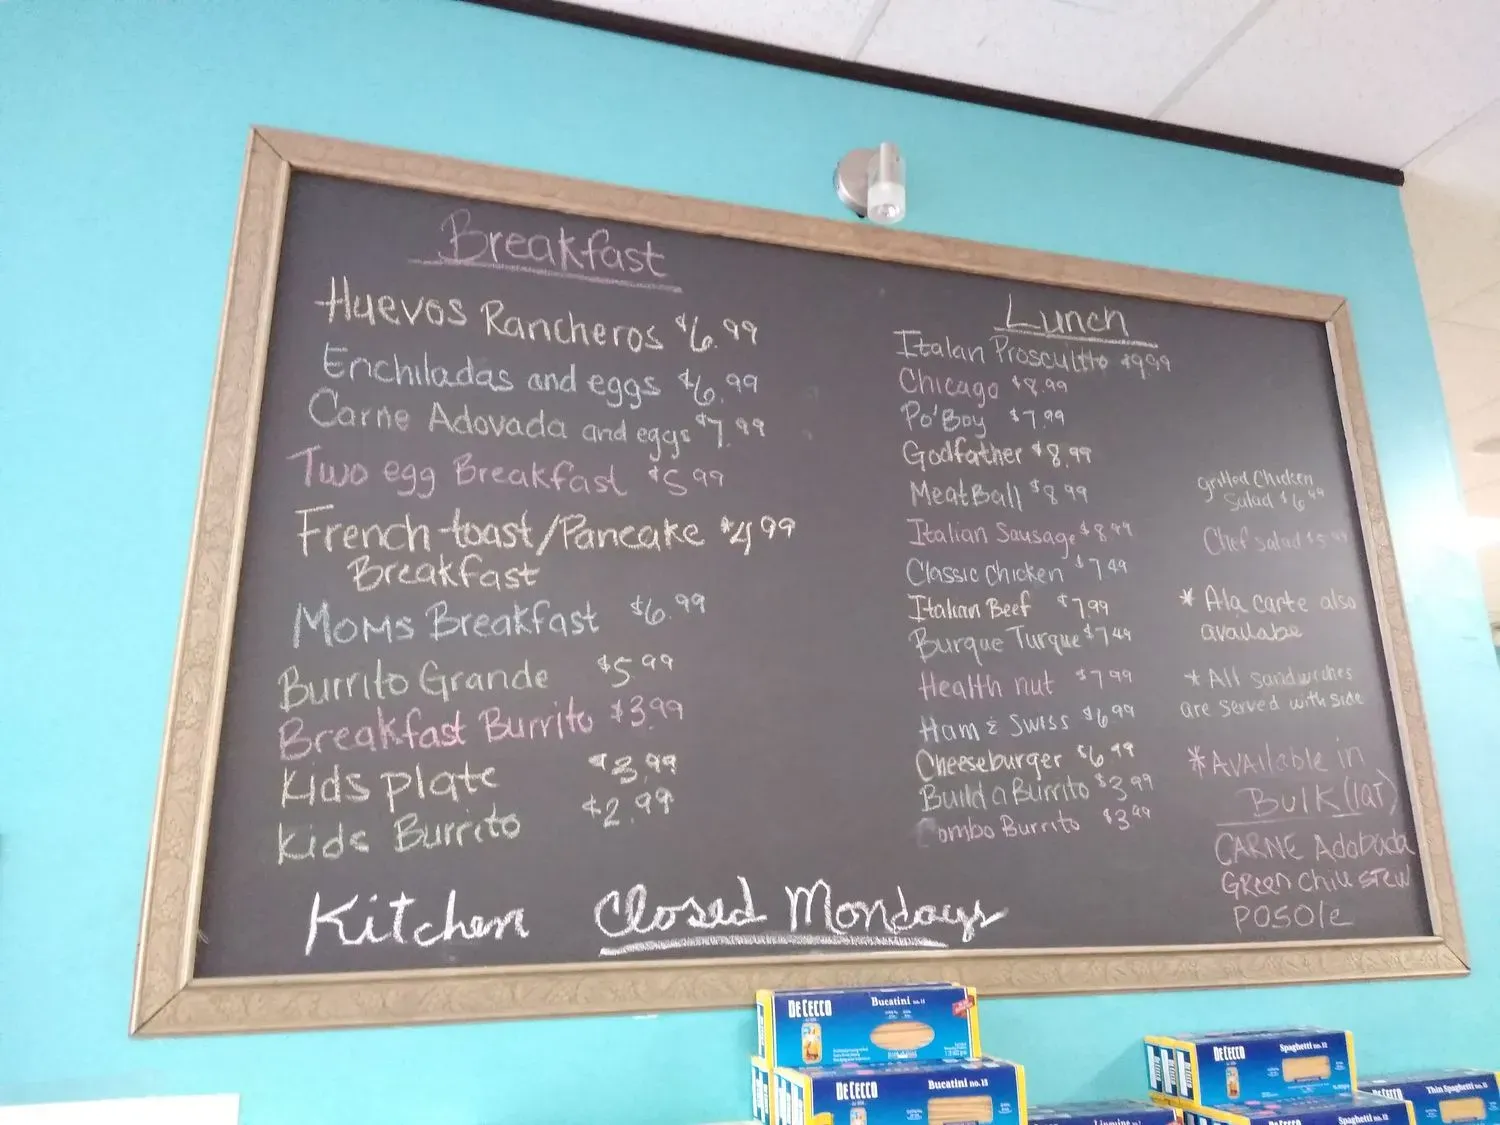 Breakfast
Huevos Rancheros $6.99
Enchiladas and eggs $6.99
Carne Adovada and eggs $7.99
Two egg Breakfast $5.99
French toast/Pancake $4.99
Breakfast
Moms Breakfast $6.99
Burrito Grande $5.99
Breakfast Burrito $3.99
Kids plate $3.99
Kids Burrito $2.99
Kitchen Closed Mondays
Lunch
Italan Proscuitto $9.99
Chicago $8.99
Po'Boy $7.99
Godfather $8.99
MeatBall $8.99
Italian Sausage $8.99
Classic Chicken $7.49
Italian Beef $7.99
Burque Turque $7.49
Health nut $7.99
Ham & Swiss $6.99
Cheeseburger $6.99
Build a Burrito $3.99
Combo Burrito $3.99
Grilled Chicken
Salad $6.99
Chef Salad $5.99
* Ala carte also
availabe
* All sandwiches
are served with side
*Available in
Bulk (1QT)
CARNE Adobada
Green Chili STEW
POSOle
DE CECCO
Bucatini no. 15
DE CECCO
Bucatini no. 15
DE CECCO
Spaghetti no. 12
DE CECCO
Spaghetti no. 12
DE CECCO
Thin Spaghetti no.
Linguine